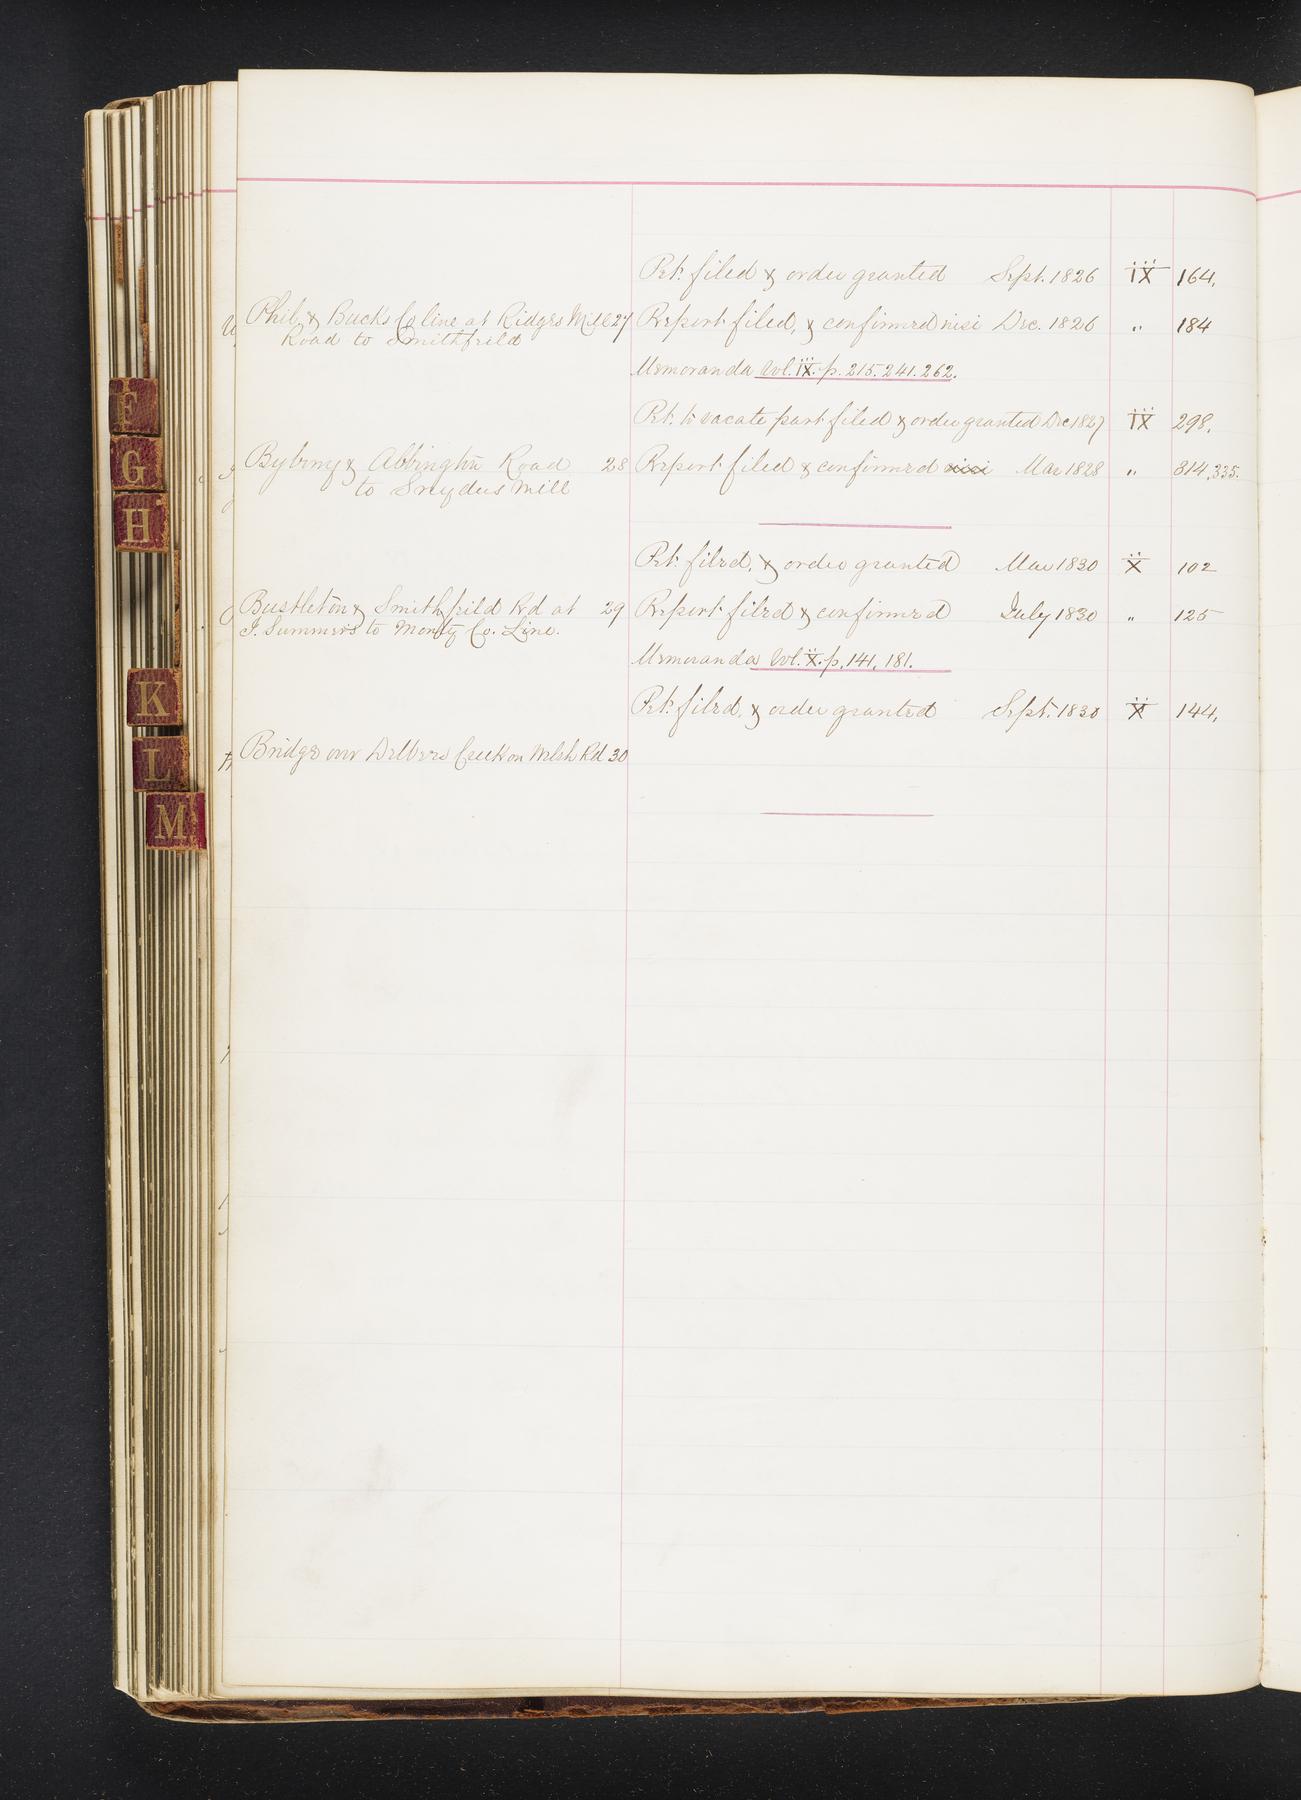 Pet. filed & order granted Sept. 1826 IX 164,
Phil. & Bucks Co line at Ridges Mill 27 Report filed, & confirmed nisi Dec. 1826 " 184
Road to Smithfield
Memoranda Vol. IX. p. 215. 241. 262.
Pet. to vacate part filed & order granted Dec 1827 IX 298,
Byberry & Abbington Road 28 Report filed & confirmed nisi Mar 1828 " 314, 335.
to Snyders Mill
Pet. filed, & order granted Mar 1830 X 102
Bustleton & Smithfield Rd at 29 Report filed & confirmed July 1830 " 125
J. Summers to Montg Co. Line.
Memoranda Vol. X. p, 141, 181.
Pet. filed, & order granted Sept. 1830 X 144,
Bridge over Creek on Welsh Rd 30
F
G
H
K
L
M